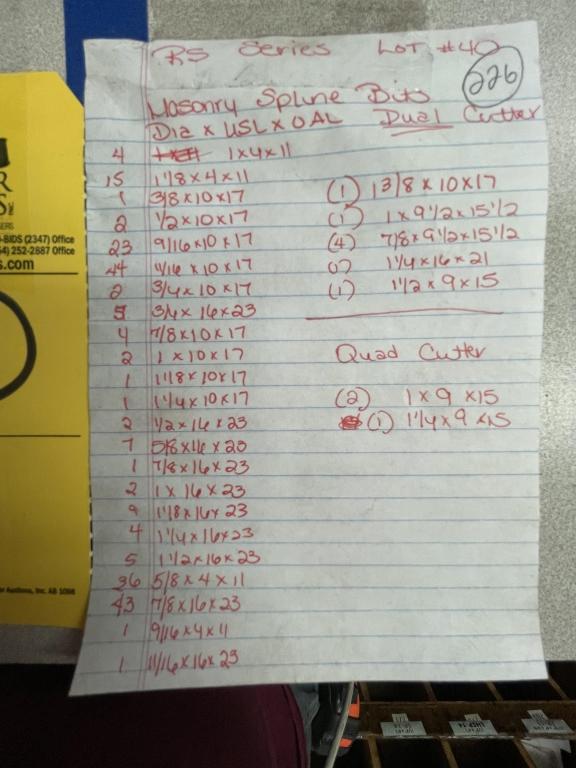 RS Series LOT #40
226
Masonry Spline Bits
Dia x USL x OAL Dual Cutter
4 1x4x11
15 1 1/8 x 4 x 11
1 3/8 x 10 x 17
2 1/2 x 10 x 17
23 9/16 x 10 x 17
44 11/16 x 10 x 17
2 3/4 x 10 x 17
5 3/4 x 16 x 23
4 7/8 x 10 x 17
2 1 x 10 x 17
1 1 1/8 x 10 x 17
1 1 1/4 x 10 x 17
2 1/2 x 16 x 23
7 5/8 x 16 x 23
1 7/8 x 16 x 23
2 1 x 16 x 23
9 1 1/8 x 16 x 23
4 1 1/4 x 16 x 23
5 1 1/2 x 16 x 23
36 5/8 x 4 x 11
43 7/8 x 16 x 23
1 9/16 x 4 x 11
1 11/16 x 16 x 23
(1) 1 3/8 x 10 x 17
(1) 1 x 9 1/2 x 15 1/2
(4) 7/8 x 9 1/2 x 15 1/2
1 1/4 x 16 x 21
(1) 1 1/2 x 9 x 15
Quad Cutter
(2) 1 x 9 x 15
(1) 1 1/4 x 9 x 15
-BIDS (2347) Office
4) 252-2887 Office
s.com
Auctions, Inc. AB 1098